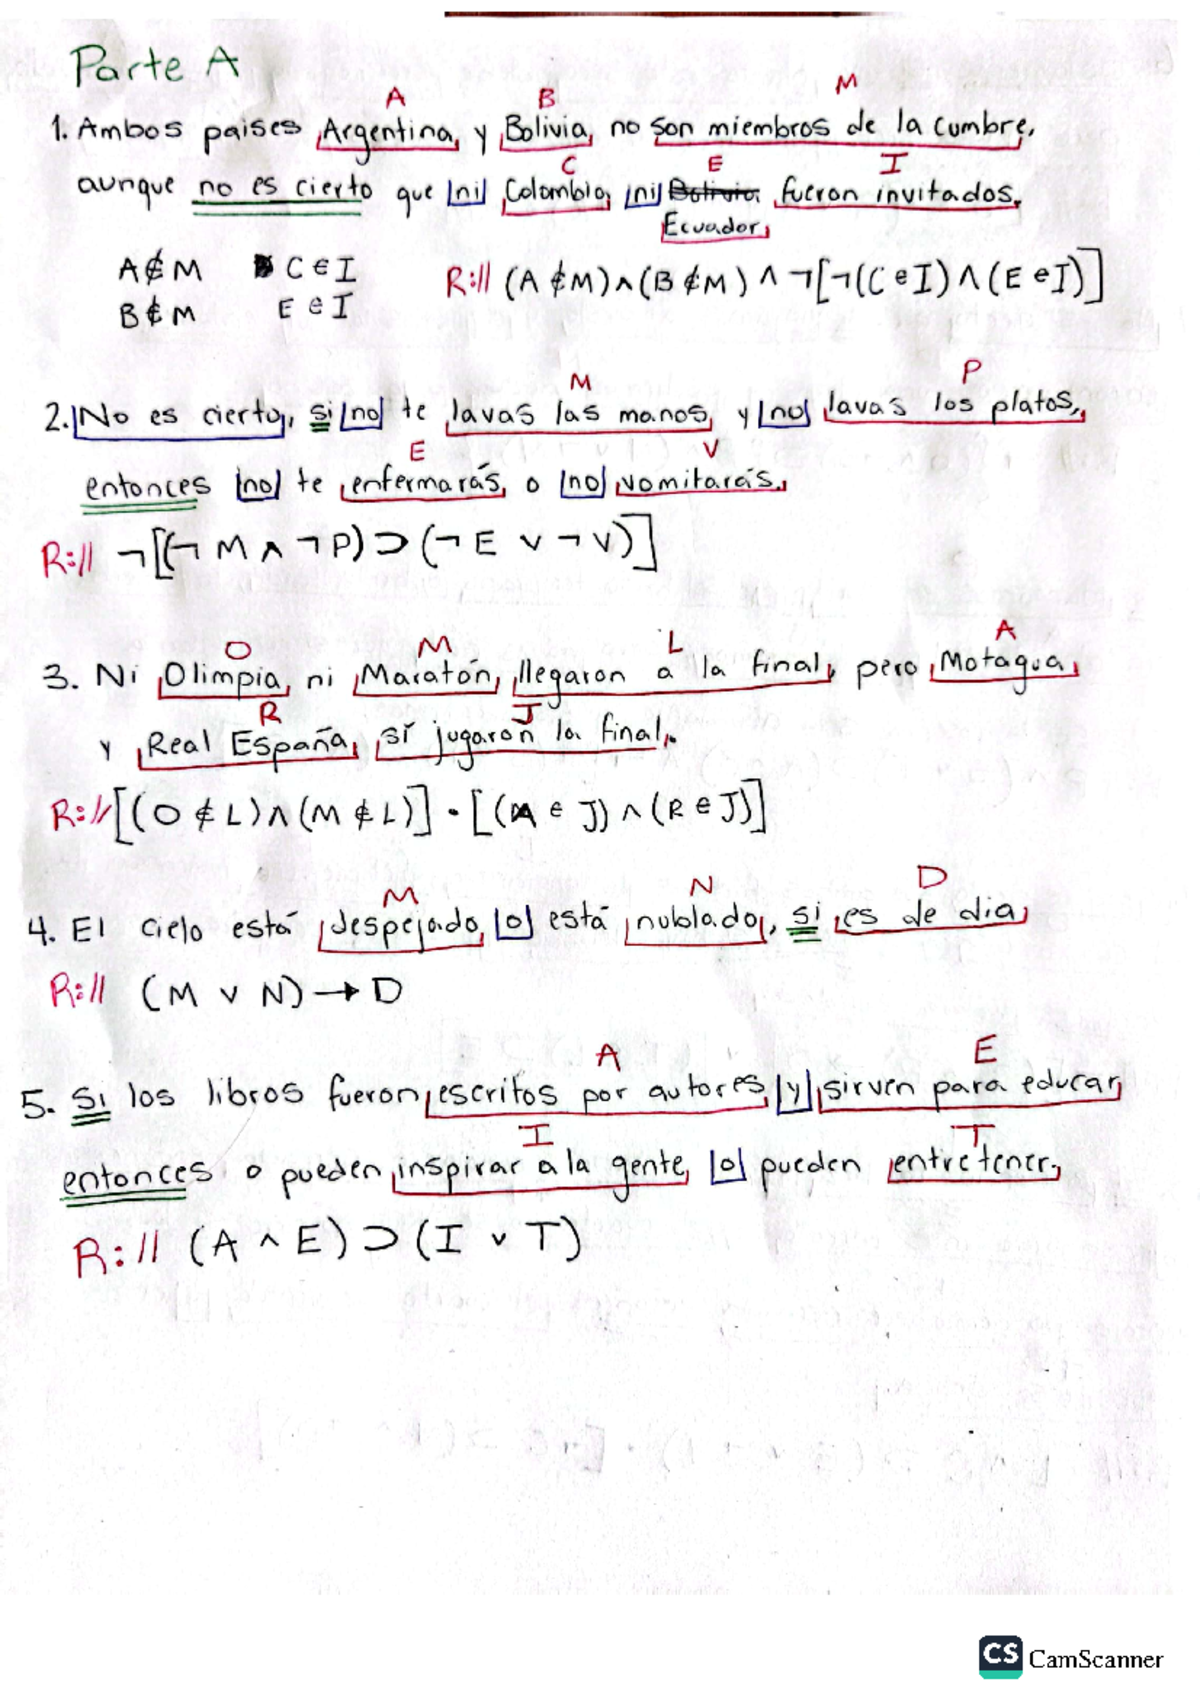 Parte A
A B M
1. Ambos paises Argentina y Bolivia, no son miembros de la cumbre,
C E I
aunque no es cierto que ni Colombia, ni Bolivia fueron invitados.
Ecuador
A ∉ M C ∈ I R:// (A ∉ M) ∧ (B ∉ M) ∧ ¬[¬(C ∈ I) ∧ (E ∈ I)]
B ∉ M E ∈ I
M P
2. No es cierto, si no te lavas las manos y no lavas los platos,
E V
entonces no te enfermarás o no vomitarás.
R:// ¬[(¬ M ∧ ¬ P) ⊃ (¬ E ∨ ¬ V)]
O M L A
3. Ni Olimpia ni Maratón, llegaron a la final, pero Motagua
R J
y Real España, sí jugaron la final.
R:// [(O ∉ L) ∧ (M ∉ L)] · [(A ∈ J) ∧ (R ∈ J)]
M N D
4. El cielo está despejado o está nublado, si es de dia
R:// (M ∨ N) → D
A E
5. Si los libros fueron escritos por autores y sirven para educar,
I T
entonces o pueden inspirar a la gente o pueden entretener.
R:// (A ∧ E) ⊃ (I ∨ T)
CS CamScanner